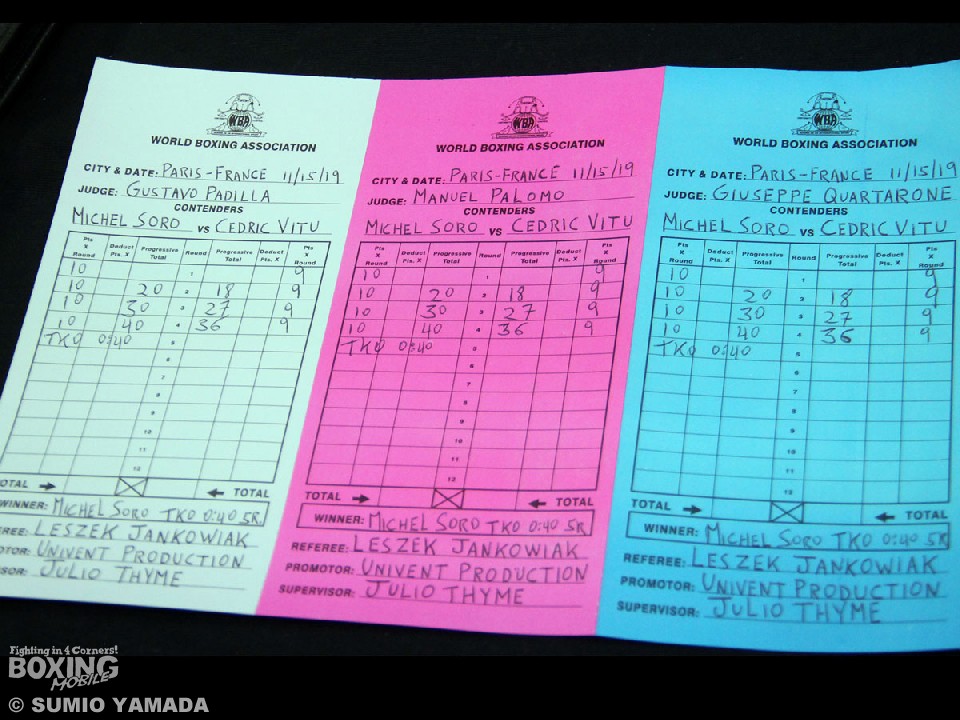 WBA
WORLD BOXING ASSOCIATION
CITY & DATE: PARIS-FRANCE 11/15/19
JUDGE: GUSTAVO PADILLA
CONTENDERS
MICHEL SORO VS CEDRIC VITU
Pts X Round Deduct Pts. X Progressive Total Round Progressive Total Deduct Pts. X Pts X Round
10 1 9
10 20 18 9
10 30 27 9
10 40 36 9
TKO 0:40
8
9
10
11
12
TOTAL TOTAL
WINNER: MICHEL SORO TKO 0:40 5R
REE: LESZEK JANKOWIAK
OTOR: UNIVENT PRODUCTION
SOR: JULIO THYME
WBA
WORLD BOXING ASSOCIATION
CITY & DATE: PARIS-FRANCE 11/15/19
JUDGE: MANUEL PALOMO
CONTENDERS
MICHEL SORO VS CEDRIC VITU
Pts X Round Deduct Pts. X Progressive Total Round Progressive Total Deduct Pts. X Pts X Round
10 1 9
10 20 18 9
10 30 27 9
10 40 36 9
TKO 0:40
6
7
8
9
10
11
12
TOTAL TOTAL
WINNER: MICHEL SORO TKO 0:40 5R
REFEREE: LESZEK JANKOWIAK
PROMOTOR: UNIVENT PRODUCTION
SUPERVISOR: JULIO THYME
WBA
WORLD BOXING ASSOCIATION
CITY & DATE: PARIS-FRANCE 11/15/19
JUDGE: GIUSEPPE QUARTARONE
CONTENDERS
MICHEL SORO VS CEDRIC VITU
Pts X Round Deduct Pts. X Progressive Total Round Progressive Total Deduct Pts. X Pts X Round
10 1 9
10 20 18 9
10 30 27 9
10 40 36 9
TKO 0:40
6
7
8
9
10
11
12
TOTAL TOTAL
WINNER: MICHEL SORO TKO 0:40 5R
REFEREE: LESZEK JANKOWIAK
PROMOTOR: UNIVENT PRODUCTION
SUPERVISOR: JULIO THYME
Fighting in 4 Corners!
BOXING
MOBILE
© SUMIO YAMADA